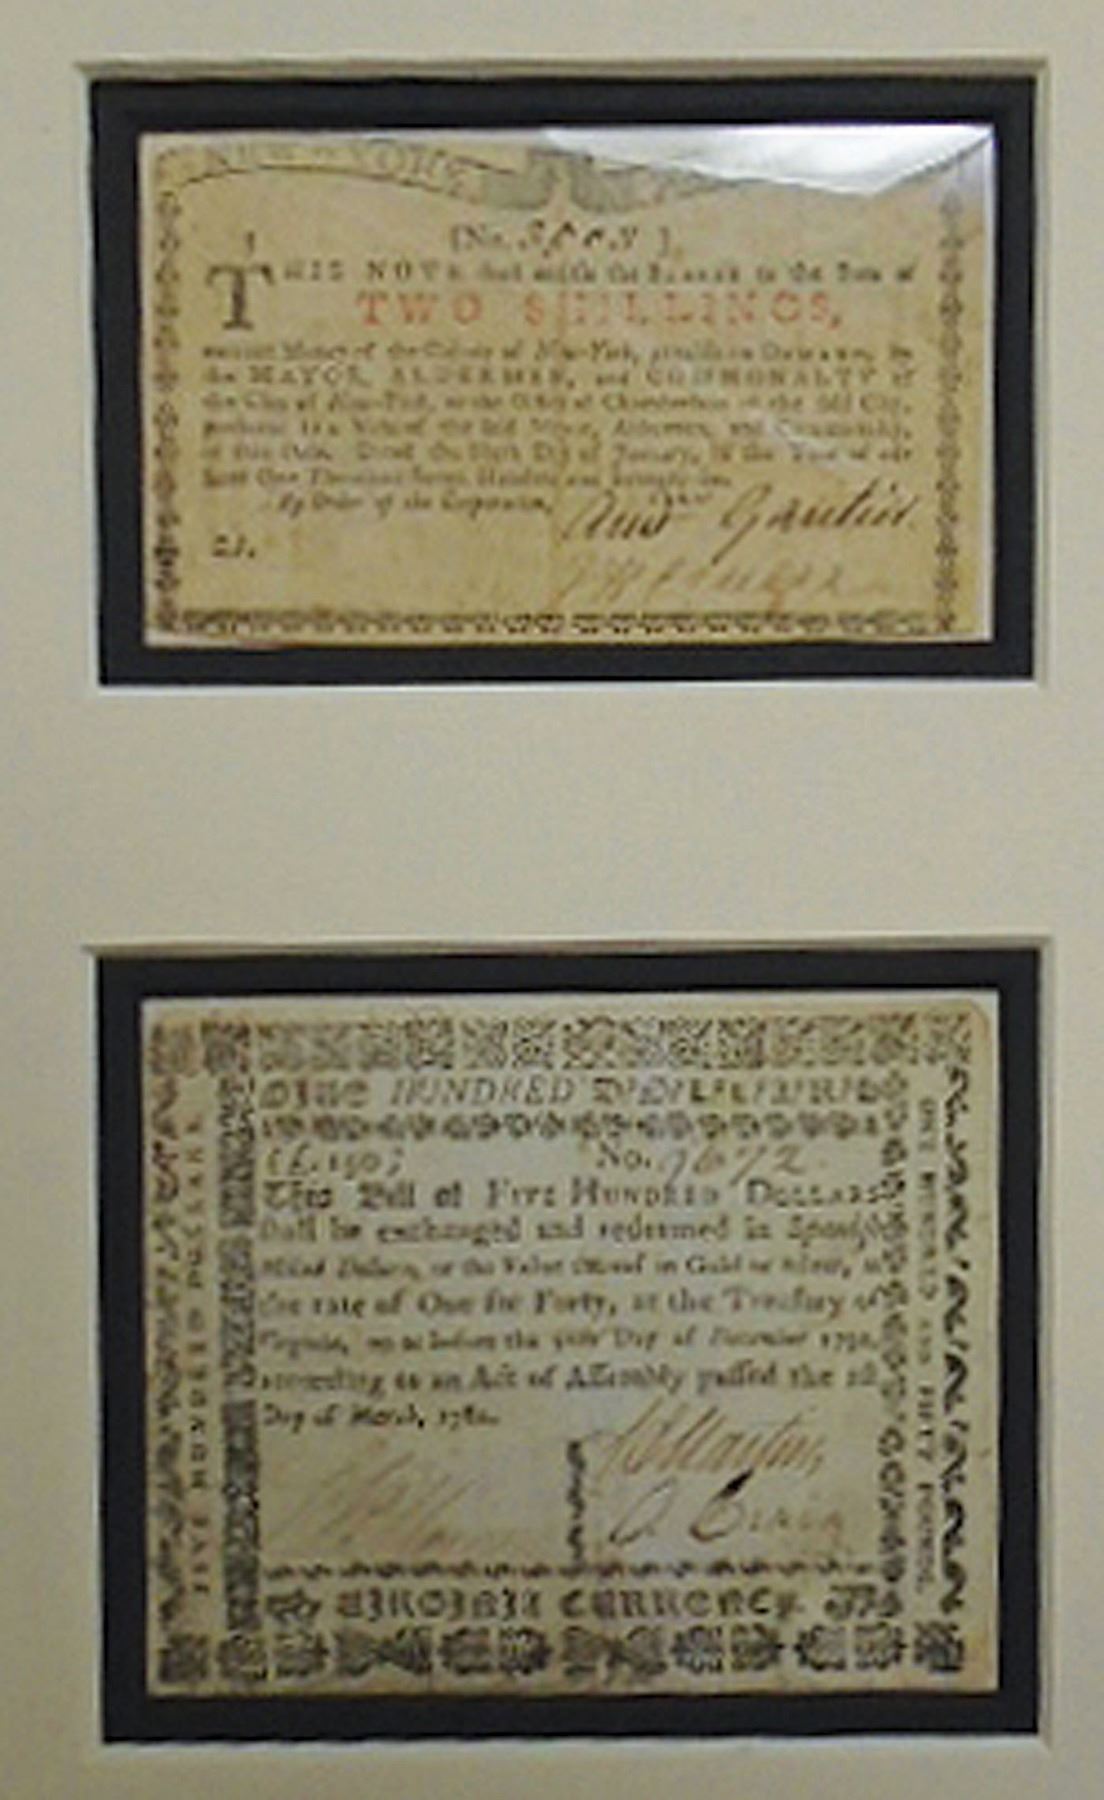 NEW-YORK
(No. )
THIS NOTE shall entitle the BEARER to the Sum of
TWO SHILLINGS,
current Money of the Colony of New-York, payable on DEMAND, by
the MAYOR, ALDERMEN, and COMMONALTY of
the City of New-York, at the Office of Chamberlain of the said City,
pursuant to a Vote of the said Mayor, Aldermen, and Commonalty,
of this Date. Dated the Day of January, in the Year of our
Lord One Thousand Seven Hundred and Seventy-six.
By Order of the Corporation,
And Gautier
2s.
HUNDRED
(£.150)
No. 7672
This Bill of FIVE HUNDRED DOLLARS
shall be exchanged and redeemed in Spanish
Milled Dollars, or the Value thereof in Gold or Silver, at
the rate of One for Forty, at the Treasury of
Virginia, on or before the Day of December
according to an Act of Assembly passed the
Day of March,
Martin
D. Craig
VIRGINIA CURRENCY.
FIVE HUNDRED DOLLARS
ONE HUNDRED AND FIFTY POUNDS.